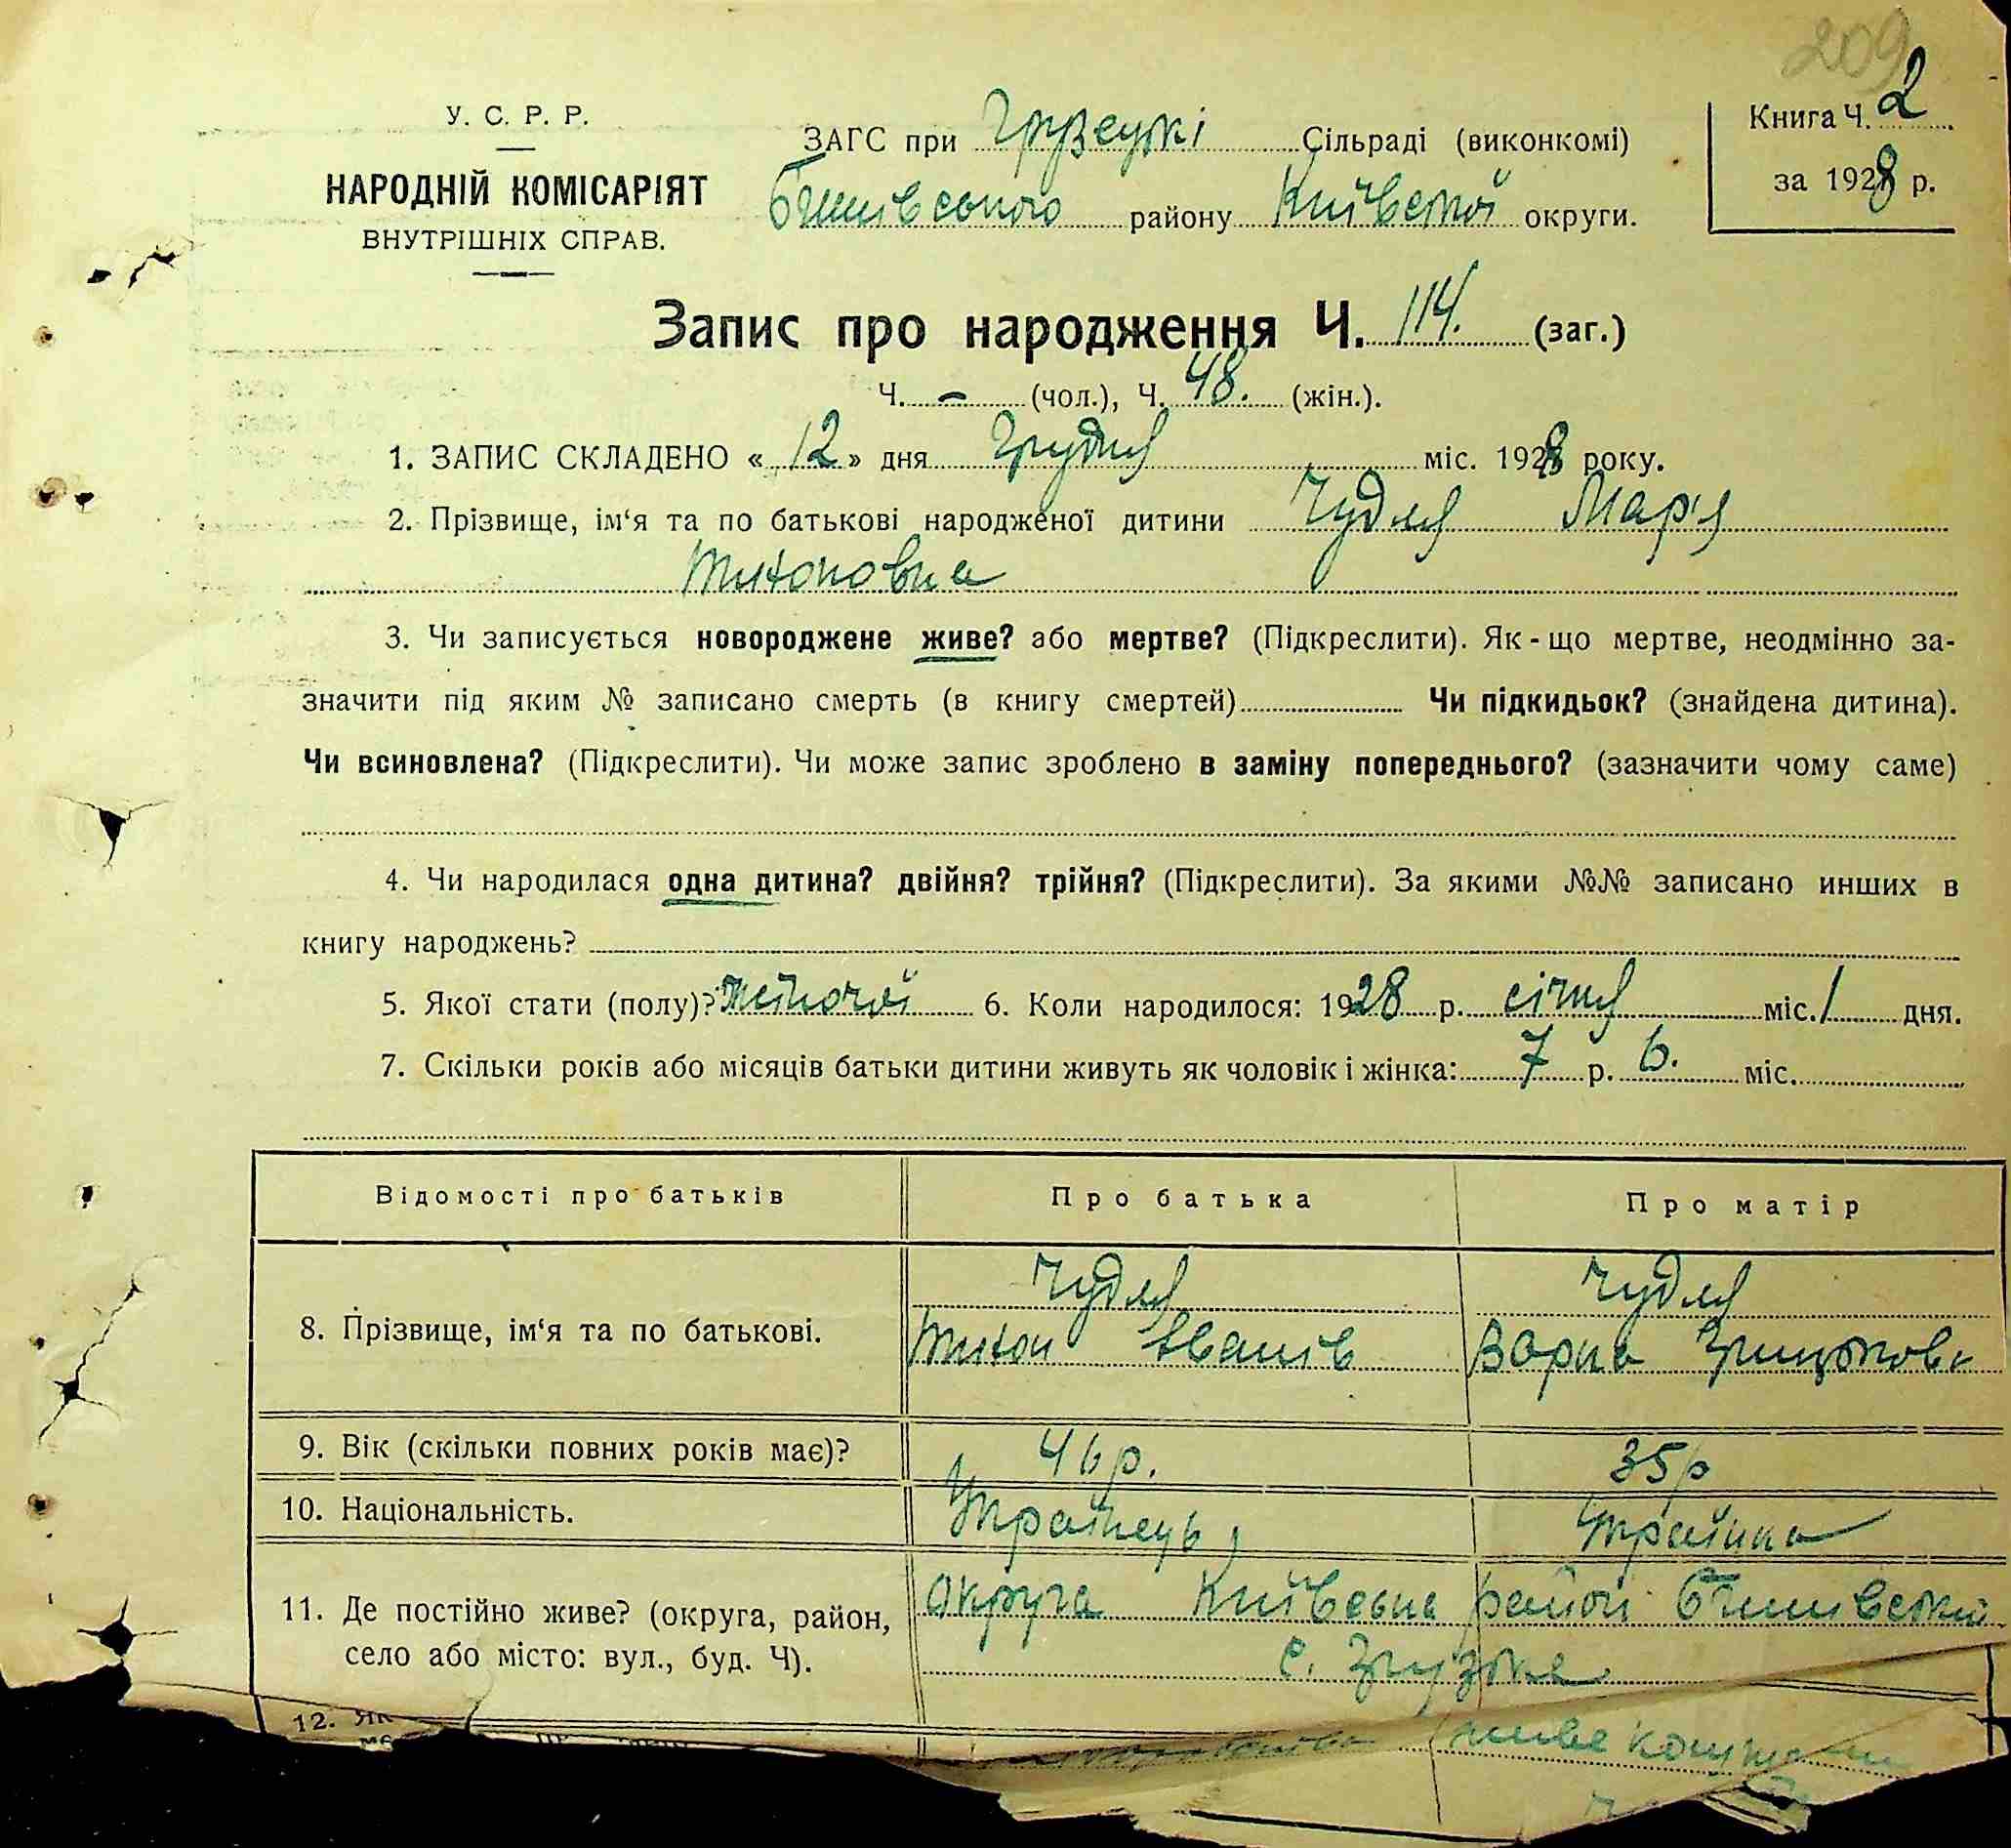 209
У. С. Р. Р.
НАРОДНІЙ КОМІСАРІЯТ
ВНУТРІШНІХ СПРАВ.
ЗАГС при Грузецькі Сільраді (виконкомі)
Бишівського району Київської округи.
Книга Ч. 2
за 1928 р.
Запис про народження Ч. 114. (заг.)
Ч. – (чол.), Ч. 48. (жін.).
1. ЗАПИС СКЛАДЕНО « 12 » дня Грудня міс. 1928 року.
2. Прізвище, ім‘я та по батькові народженої дитини Чудля Мар'я
Тихоновна
3. Чи записується новороджене живе? або мертве? (Підкреслити). Як-що мертве, неодмінно за-
значити під яким № записано смерть (в книгу смертей) Чи підкидьок? (знайдена дитина).
Чи всиновлена? (Підкреслити). Чи може запис зроблено в заміну попереднього? (зазначити чому саме)
4. Чи народилася одна дитина? двійня? трійня? (Підкреслити). За якими №№ записано инших в
книгу народжень?
5. Якої стати (полу)? Жіночої 6. Коли народилося: 1928 р. січня міс. 1 дня.
7. Скільки років або місяців батьки дитини живуть як чоловік і жінка: 7 р. 6. міс.
Відомості про батьків Про батька Про матір
Чудля Чудля
8. Прізвище, ім‘я та по батькові. Тихон Іванів Варка Грицьков
9. Вік (скільки повних років має)? 46 р. 35 р
10. Національність. Українець, Українка
11. Де постійно живе? (округа, район, Округа Київська район Бишівський
село або місто: вул., буд. Ч). с. Грузьке
12. Як